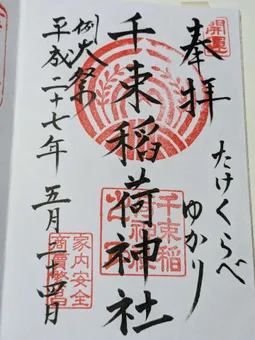 開運
奉拝
たけくらべ
ゆかり
千束稲荷神社
千束稲
例大祭
平成二十七年 五月二十四日
家内安全
商賣繁昌